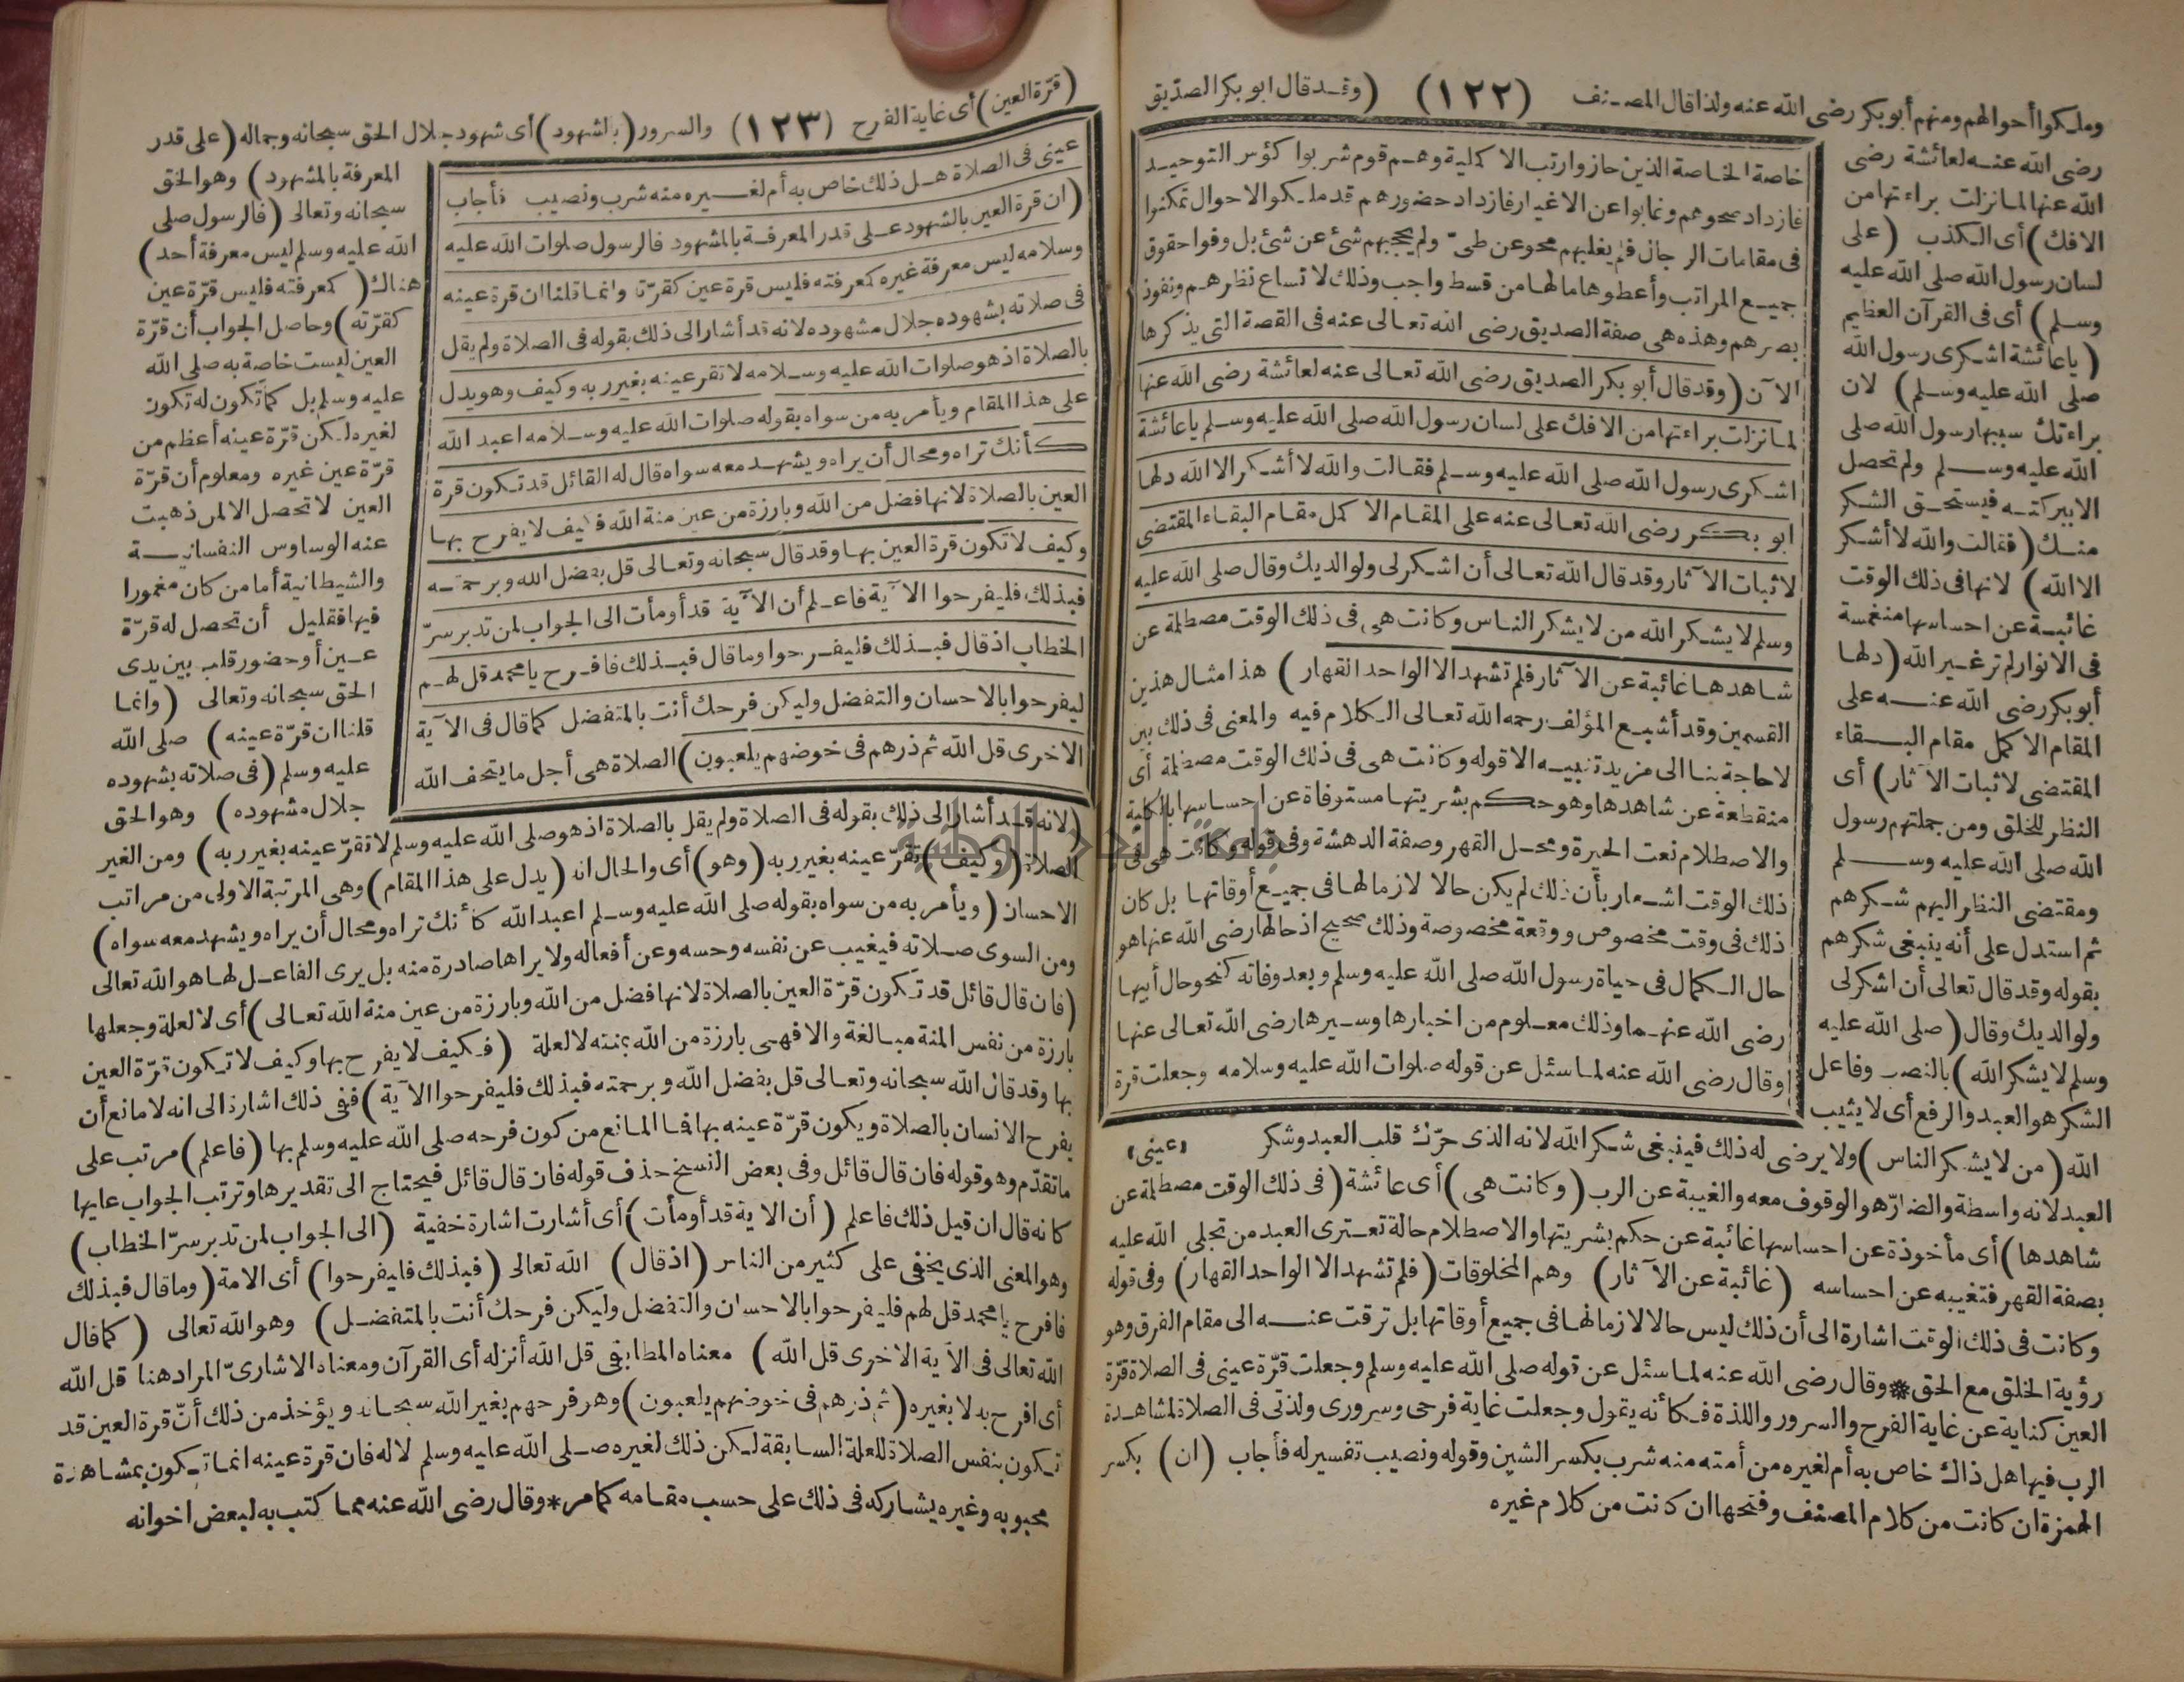 وملكوا أحوالهم ومنهم أبو بكر رضى الله عنه ولذا قال المصنف (١٢٢) (وقد قال ابو بكر الصدّيق
رضى الله عنه لعائشة رضى
الله عنها لما نزلت براءتها من
الافك) أى الكذب (على
لسان رسول الله صلى الله عليه
وسلم) أى فى القرآن العظيم
(ياعائشة اشكرى رسول الله
صلى الله عليه وسلم) لان
براءتك سببها رسول الله صلى
الله عليه وسلم ولم تحصل
الا ببركته فيستحق الشكر
منك (فقالت والله لا أشكر
الا الله) لانها فى ذلك الوقت
غائبة عن احساسها منغمسة
فى الانوار لم تر غير الله (دلها
أبو بكر رضى الله عنه على
المقام الاكمل مقام البقاء
المقتضى لاثبات الآثار) أى
النظر للخلق ومن جملتهم رسول
الله صلى الله عليه وسلم
ومقتضى النظر اليهم شكرهم
ثم استدل على أنه ينبغى شكرهم
بقوله وقد قال تعالى أن اشكر لى
ولوالديك وقال (صلى الله عليه
وسلم لا يشكر الله) بالنصب وفاعل
الشكر هو العبد والرفع أى لا يثيب
خاصة الخاصة الذين حازوا رتب الاكملية وهم قوم شربوا كؤس التوحيد
فازداد صحوهم وغابوا عن الاغيار فازداد حضورهم قد ملكوا الاحوال تمكنوا
فى مقامات الرجال فلم يغلبهم محو عن طىّ ولم يحجبهم شئ عن شئ بل وفوا حقوق
جميع المراتب وأعطوها ما لها من قسط واجب وذلك لاتساع نظرهم ونفوذ
بصرهم وهذه هى صفة الصديق رضى الله تعالى عنه فى القصة التى يذكرها
الآن (وقد قال أبو بكر الصديق رضى الله تعالى عنه لعائشة رضى الله عنها
لما نزلت براءتها من الافك على لسان رسول الله صلى الله عليه وسلم ياعائشة
اشكرى رسول الله صلى الله عليه وسلم فقالت والله لا أشكر الا الله دلها
ابو بكر رضى الله تعالى عنه على المقام الاكمل مقام البقاء المقتضى
لاثبات الآثار وقد قال الله تعالى أن اشكر لى ولوالديك وقال صلى الله عليه
وسلم لا يشكر الله من لا يشكر الناس وكانت هى فى ذلك الوقت مصطلمة عن
شاهدها غائبة عن الآثار فلم تشهد الا الواحد القهار) هذا مثال هذين
القسمين وقد أشبع المؤلف رحمه الله تعالى الكلام فيه والمعنى فى ذلك بين
لا حاجة بنا الى مزيد تنبيه الا قوله وكانت هى فى ذلك الوقت مصطلمة أى
منقطعة عن شاهدها وهو حكم بشريتها مستوفاة عن احساسها بالكلية
والاصطلام نعت الحيرة ومحل القهر وصفة الدهشة وفى قوله وكانت هى فى
ذلك الوقت اشعار بأن ذلك لم يكن حالا لازما لها فى جميع أوقاتها بل كان
ذلك فى وقت مخصوص ووقعة مخصوصة وذلك صحيح اذ حالها رضى الله عنها هو
حال الكمال فى حياة رسول الله صلى الله عليه وسلم وبعد وفاته كنحو حال أبيها
رضى الله عنهما وذلك معلوم من اخبارها وسيرها رضى الله تعالى عنها
(وقال رضى الله عنه لما سئل عن قوله صلوات الله عليه وسلامه وجعلت قرة
الله (من لا يشكر الناس) ولا يرضى له ذلك فينبغى شكر الله لانه الذى حرّك قلب العبد وشكر «عينى»
العبد لانه واسطة والضارّ هو الوقوف معه والغيبة عن الرب (وكانت هى) أى عائشة (فى ذلك الوقت مصطلمة عن
شاهدها) أى مأخوذة عن احساسها غائبة عن حكم بشريتها والاصطلام حالة تعترى العبد من تجلى الله عليه
بصفة القهر فتغيبه عن احساسه (غائبة عن الآثار) وهم المخلوقات (فلم تشهد الا الواحد القهار) وفى قوله
وكانت فى ذلك الوقت اشارة الى أن ذلك ليس حالا لازما لها فى جميع أوقاتها بل ترقت عنه الى مقام الفرق وهو
رؤية الخلق مع الحق * وقال رضى الله عنه لما سئل عن قوله صلى الله عليه وسلم وجعلت قرّة عينى فى الصلاة قرّة
العين كناية عن غاية الفرح والسرور واللذة فكأنه يقول وجعلت غاية فرحى وسرورى ولذتى فى الصلاة لمشاهدة
الرب فيها هل ذلك خاص به أم لغيره من أمته منه شرب بكسر الشين وقوله ونصيب تفسير له فأجاب (ان) بكسر
الهمزة ان كانت من كلام المصنف وفتحها ان كانت من كلام غيره
(قرّة العين) أى غاية الفرح (١٢٣) والسرور (بالشهود) أى شهود جلال الحق سبحانه وجماله (على قدر
المعرفة بالمشهود) وهو الحق
سبحانه وتعالى (فالرسول صلى
الله عليه وسلم ليس معرفة أحد)
هناك (كمعرفته فليس قرّة عين
كقرّته) وحاصل الجواب أن قرّة
العين ليست خاصة به صلى الله
عليه وسلم بل كما تكون له تكون
لغيره لكن قرّة عينه أعظم من
قرّة عين غيره ومعلوم أن قرّة
العين لا تحصل الا لمن ذهبت
عنه الوساوس النفسانية
والشيطانية أما من كان مغمورا
فيها فقليل أن تحصل له قرّة
عين أو حضور قلب بين يدى
الحق سبحانه وتعالى (وانما
قلنا ان قرّة عينه) صلى الله
عليه وسلم (فى صلاته بشهوده
جلال مشهوده) وهو الحق
عينى فى الصلاة هل ذلك خاص به أم لغيره منه شرب ونصيب فأجاب
(ان قرة العين بالشهود على قدر المعرفة بالمشهود فالرسول صلوات الله عليه
وسلامه ليس معرفة غيره كمعرفته فليس قرة عين كقرّته وانما قلنا ان قرة عينه
فى صلاته بشهوده جلال مشهوده لانه قد أشار الى ذلك بقوله فى الصلاة ولم يقل
بالصلاة اذ هو صلوات الله عليه وسلامه لا تقر عينه بغير ربه وكيف وهو يدل
على هذا المقام ويأمر به من سواه بقوله صلوات الله عليه وسلامه اعبد الله
كأنك تراه ومحال أن يراه ويشهد معه سواه قال له القائل قد تكون قرة
العين بالصلاة لانها فضل من الله وبارزة من عين منة الله فكيف لا يفرح بها
وكيف لا تكون قرة العين بها وقد قال سبحانه وتعالى قل بفضل الله وبرحمته
فبذلك فليفرحوا الآية فاعلم أن الآية قد أومأت الى الجواب لمن تدبر سرّ
الخطاب اذ قال فبذلك فليفرحوا وما قال فبذلك فافرح يا محمد قل لهم
ليفرحوا بالاحسان والتفضل وليكن فرحك أنت بالمتفضل كما قال فى الآية
الاخرى قل الله ثم ذرهم فى خوضهم يلعبون) الصلاة هى أجل ما يتحف الله
(لانه قد أشار الى ذلك بقوله فى الصلاة ولم يقل بالصلاة اذ هو صلى الله عليه وسلم لا تقرّ عينه بغير ربه) ومن الغير
الصلاة (وكيف) تقرّ عينه بغير ربه (وهو) أى والحال انه (يدل على هذا المقام) وهى المرتبة الاولى من مراتب
الاحسان (ويأمر به من سواه بقوله صلى الله عليه وسلم اعبد الله كأنك تراه ومحال أن يراه ويشهد معه سواه)
ومن السوى صلاته فيغيب عن نفسه وحسه وعن أفعاله ولا يراها صادرة منه بل يرى الفاعل لها هو الله تعالى
(فان قال قائل قد تكون قرّة العين بالصلاة لانها فضل من الله وبارزة من عين منة الله تعالى) أى لا لعلة وجعلها
بارزة من نفس المنة مبالغة والا فهى بارزة من الله بمنته لا لعلة (فكيف لا يفرح بها وكيف لا تكون قرّة العين
بها وقد قال الله سبحانه وتعالى قل بفضل الله وبرحمته فبذلك فليفرحوا الآية) ففى ذلك اشارة الى انه لا مانع أن
يفرح الانسان بالصلاة ويكون قرّة عينه بها فما المانع من كون فرحه صلى الله عليه وسلم بها (فاعلم) مرتب على
ما تقدّم وهو قوله فان قال قائل وفى بعض النسخ حذف قوله فان قال قائل فيحتاج الى تقديرها وترتب الجواب عليها
كانه قال ان قيل ذلك فاعلم (أن الآية قد أومأت) أى أشارت اشارة خفية (الى الجواب لمن تدبر سرّ الخطاب)
وهو المعنى الذى يخفى على كثير من الناس (اذ قال) الله تعالى (فبذلك فليفرحوا) أى الامة (وما قال فبذلك
فافرح يا محمد قل لهم فليفرحوا بالاحسان والتفضل وليكن فرحك أنت بالمتفضل) وهو الله تعالى (كما قال
الله تعالى فى الآية الاخرى قل الله) معناه المطابقى قل الله أنزله أى القرآن ومعناه الاشارىّ المراد هنا قل الله
أى افرح به لا بغيره (ثم ذرهم فى خوضهم يلعبون) وهو فرحهم بغير الله سبحانه ويؤخذ من ذلك أنّ قرة العين قد
تكون بنفس الصلاة للعلة السابقة لكن ذلك لغيره صلى الله عليه وسلم لا له فان قرة عينه انما تكون بمشاهدة
محبوبه وغيره يشاركه فى ذلك على حسب مقامه كما مر * وقال رضى الله عنه مما كتب به لبعض اخوانه